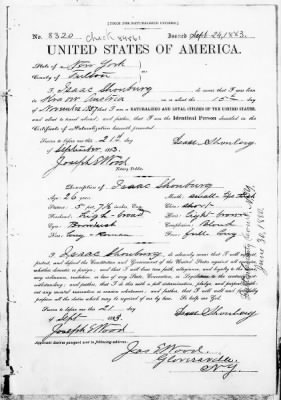 [FORM FOR NATURALIZED CITIZEN.]
No. 8320 check Issued Sept 24, 1883.
UNITED STATES OF AMERICA.
State of New York
County of Fulton
I, Isaac Shonburg, do swear that I was born
in Austria on or about the 15th day
of November 1857; that I am a NATURALIZED AND LOYAL CITIZEN OF THE UNITED STATES,
and about to travel abroad; and further, that I am the Identical Person described in the
Certificate of Naturalization herewith presented.
Sworn to before me this 21st day
of September 1883. Isaac Shonburg
Joseph E Wood
Notary Public.
Description of Isaac Shonburg
Age: 26 years. Mouth: small
Stature: 5 feet 7½ inches, Eng. Chin: short
Forehead: high - broad Hair: light brown
Eyes: Brownish Complexion: Blond
Nose: long - Roman Face: full long
I, Isaac Shonburg, do solemnly swear that I will support,
protect, and defend the Constitution and Government of the United States against all enemies,
whether domestic or foreign; and that I will bear true faith, allegiance, and loyalty to the same,
any ordinance, resolution, or law of any State, Convention, or Legislature to the contrary not-
withstanding; and further, that I do this with a full determination, pledge, and purpose, with-
out any mental reservation or evasion whatsoever; and further, that I will well and faithfully
perform all the duties which may be required of me by law. So help me God.
Sworn to before me this 21 day
of Sept 1883. Isaac Shonburg
Joseph E Wood
Notary Public.
Applicant desires passport sent to following address:
Jos E Wood.
Gloversville
N.Y.